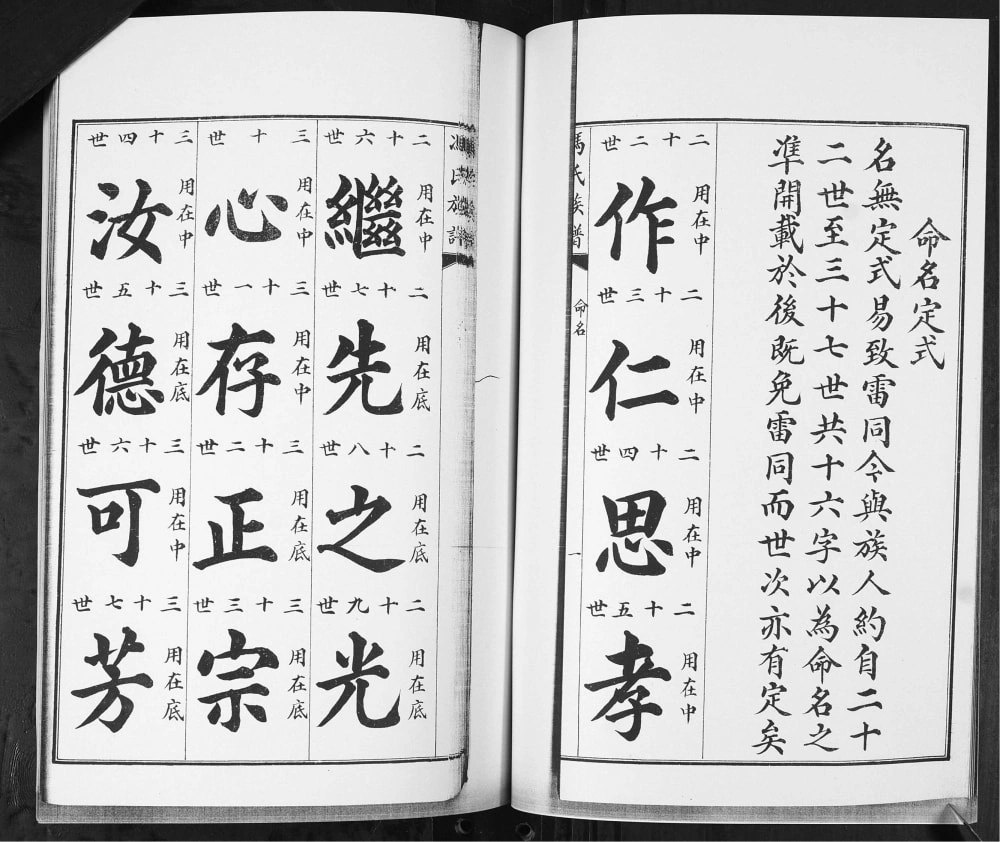 命名定式
名無定式易致雷同今與族人約自二十
二世至三十七世共十六字以為命名之
準開載於後既免雷同而世次亦有定矣
二十二世
作
用在中
二十三世
仁
用在中
二十四世
思
用在中
二十五世
孝
用在中
馮氏族譜
命名
一
馮氏族譜
二十六世
繼
用在中
二十七世
先
用在底
二十八世
之
用在底
二十九世
光
用在底
三十世
心
用在中
三十一世
存
用在中
三十二世
正
用在底
三十三世
宗
用在底
三十四世
汝
用在中
三十五世
德
用在底
三十六世
可
用在中
三十七世
芳
用在底